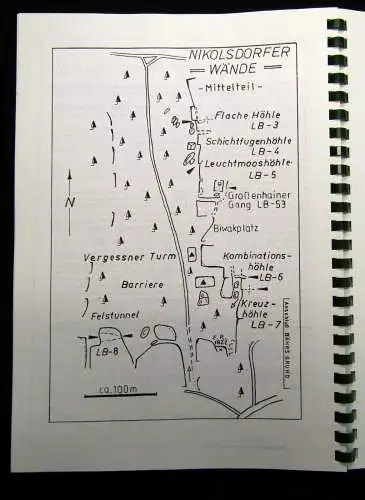 NIKOLSDORFER
WÄNDE
-Mittelteil-
Flache Höhle
LB-3
Schichtfugenhöhle
LB-4
Leuchtmooshöhle
LB-5
Großenhainer
Gang LB-53
Biwakplatz
N
Vergessner Turm
Kombinations-
höhle
LB-6
Barriere
Kreuz-
höhle
LB-7
Felstunnel
LB-8
BÄHRSGRUND
ca. 100m